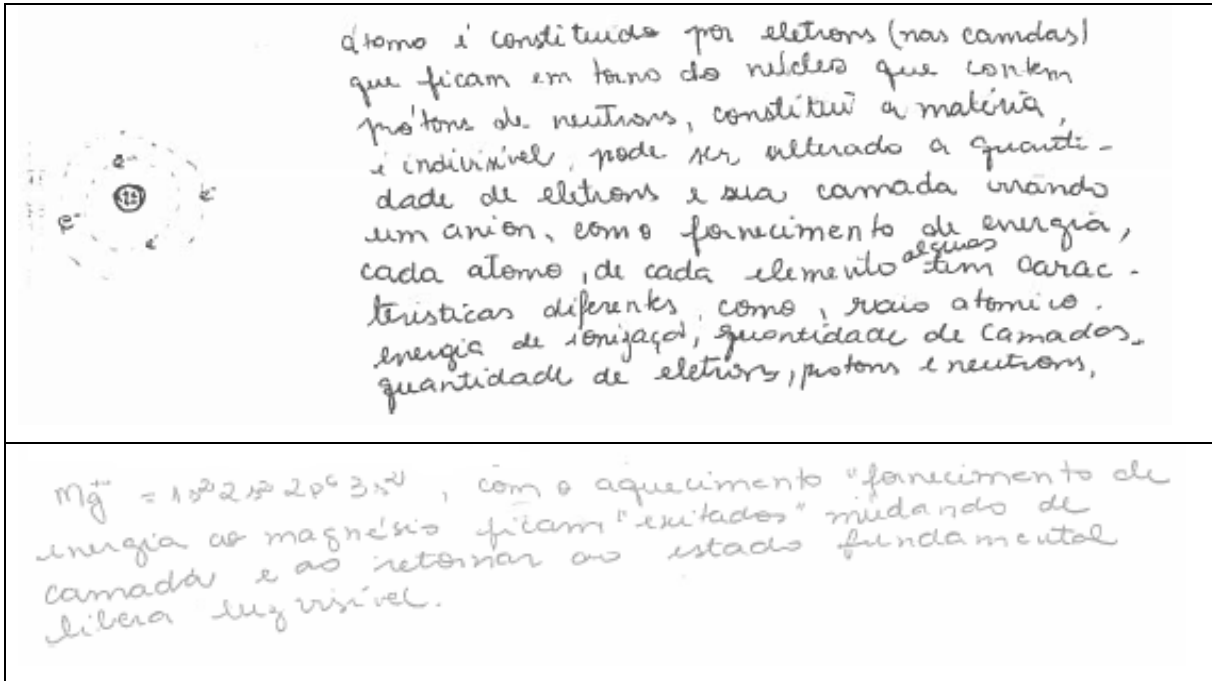 átomo é constituido por eletrons (nas camdas)
que ficam em torno do núcleo que contem
prótons de neutrons, constitui a matéria,
é indivisível, pode ser alterado a quanti-
dade de elétrons e sua camada virando
um anion, como fornecimento de energia,
cada atomo, de cada elemento algumas tem carac-
teristicas diferentes, como, raio atomico.
energia de ionizaçaõ, quantidade de camados.
quantidade de eletrons, protons e neutrons,
e-
e-
e-
e-
Mg++ = 1s2 2s2 2p6 3s2, com o aquecimento "fornecimento de
energia ao magnésio ficam "exitados" mudando de
camada e ao retornar ao estado fundamental
libera luz visível.